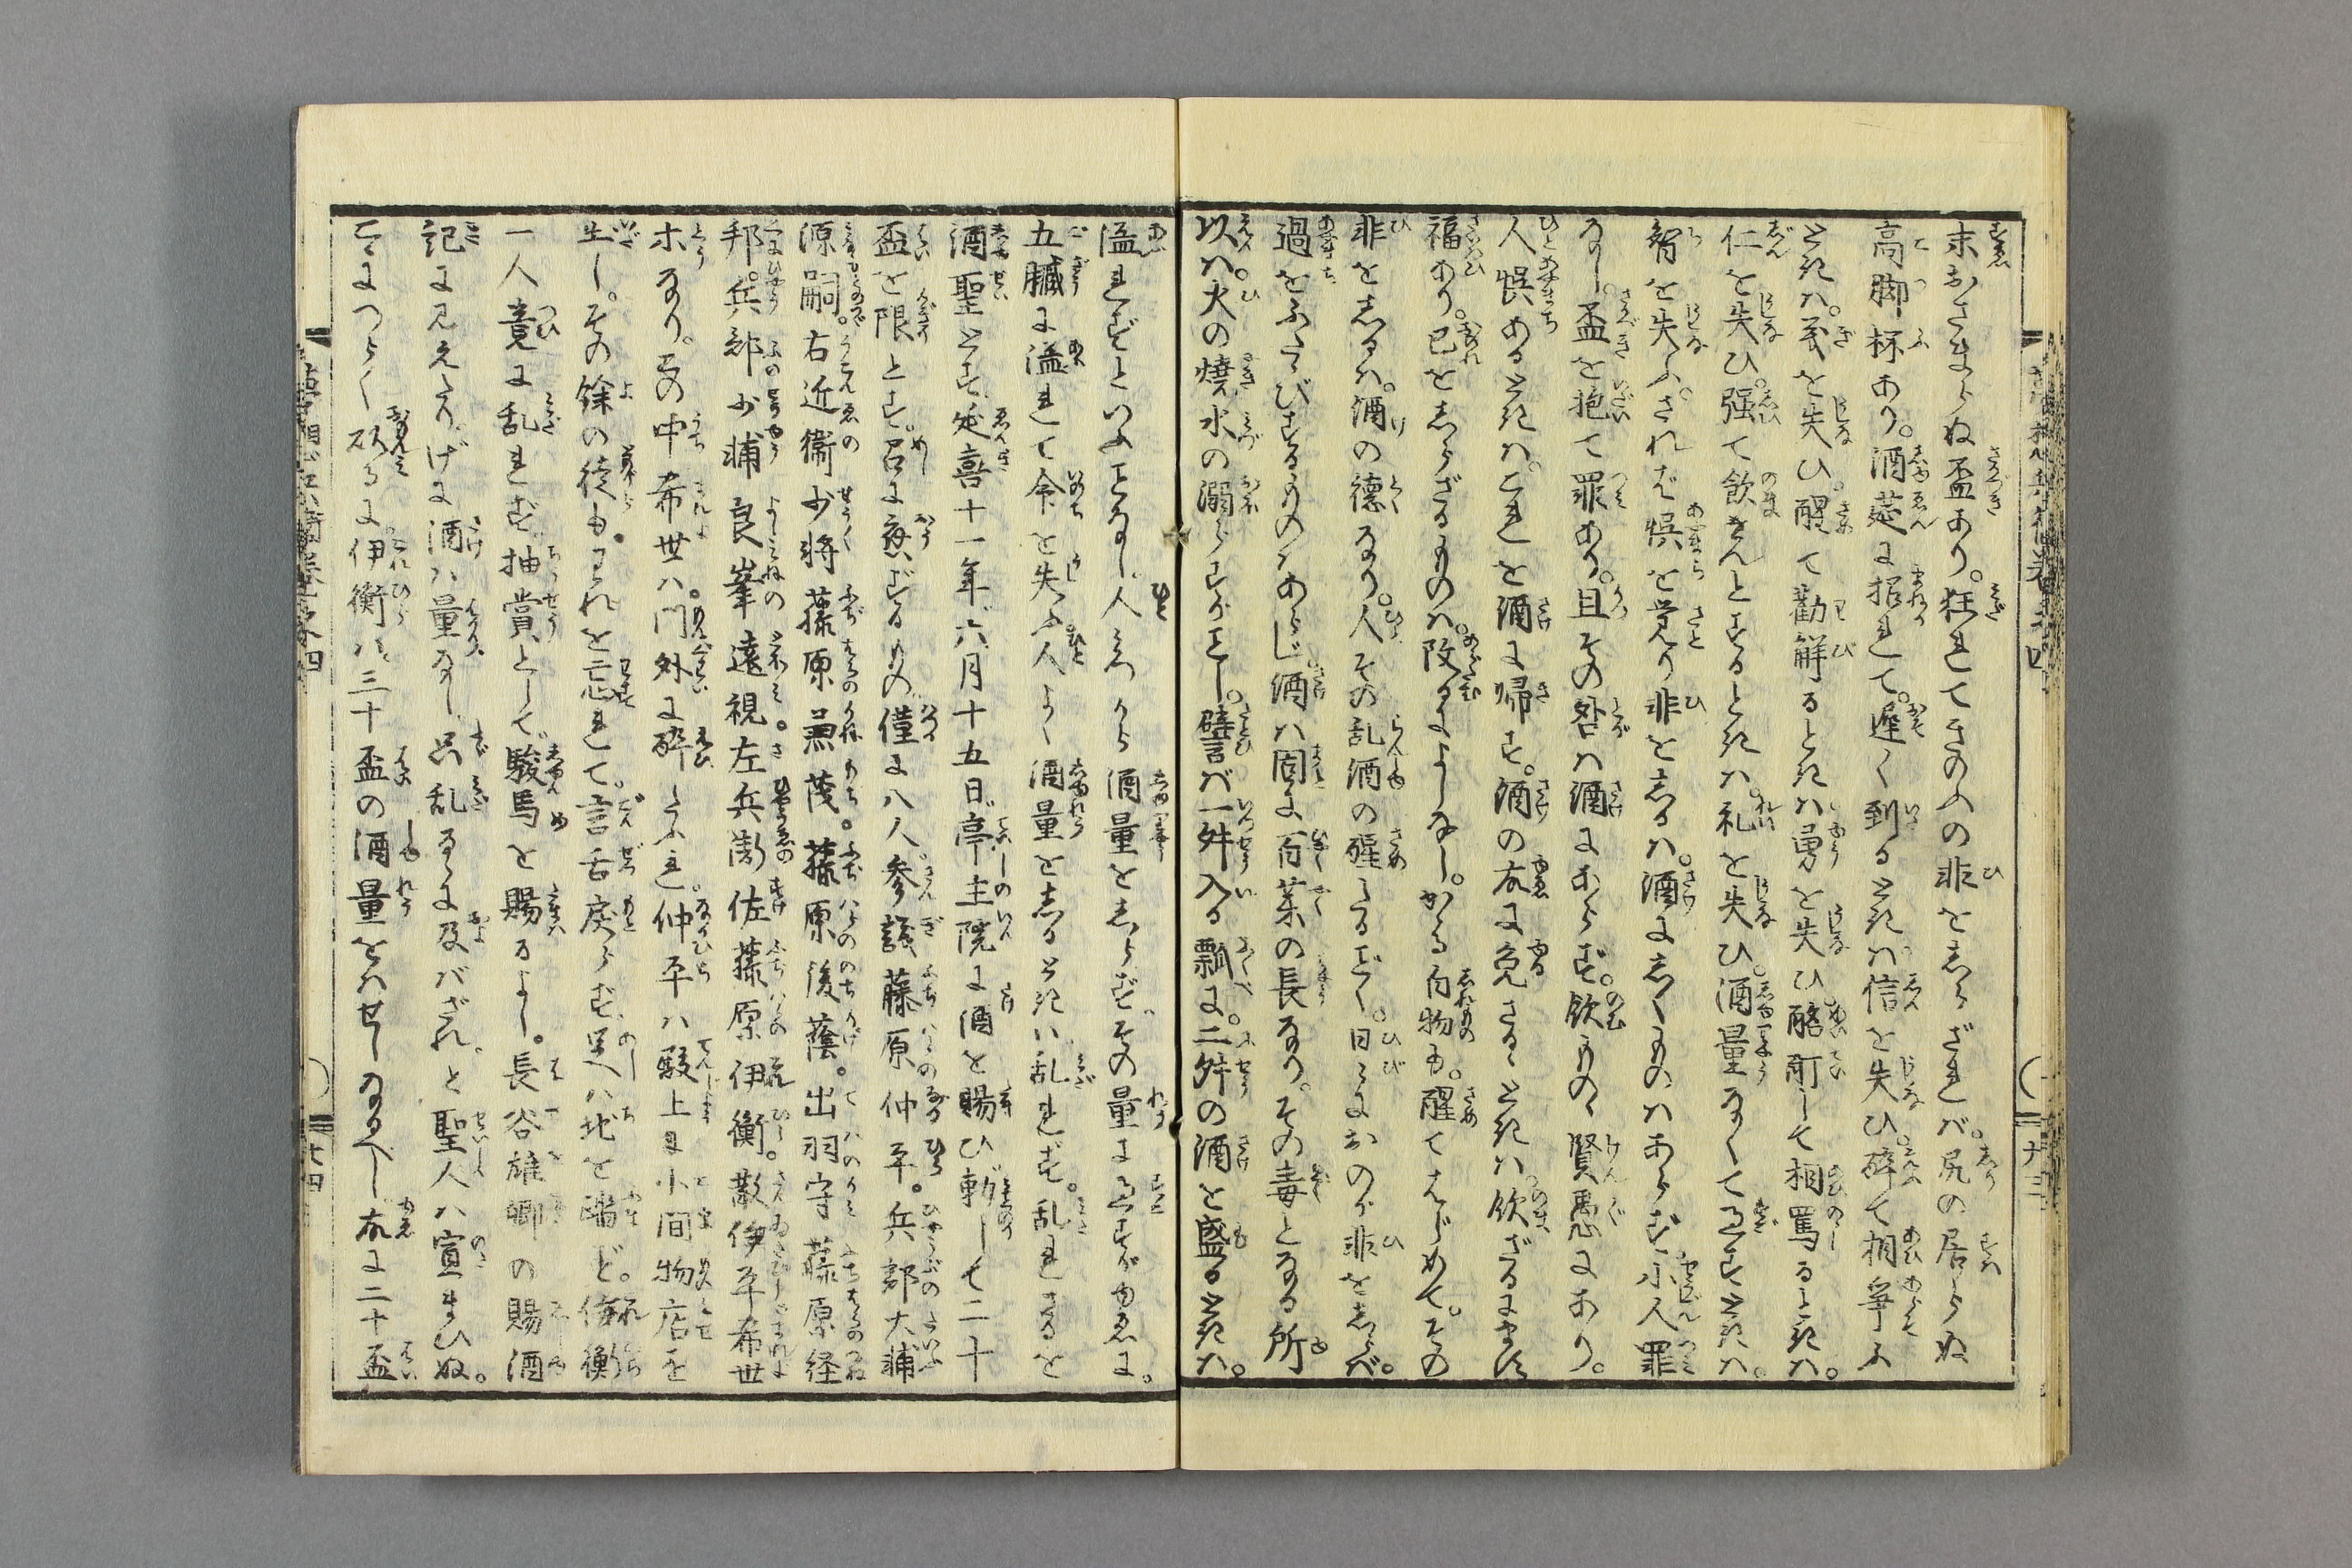 末おさまらぬ盃あり。狂れてきのふの非をしらざれバ。尻の居らぬ
高脚杯あり。酒莚に招れて。遅く到るときハ信を失ひ。酔て相争ふ
ときハ。義を失ひ。醒て勸解るときハ勇を失ひ酩酊して相罵るときハ。
仁を失ひ。强て飲せんとするときハ。礼を失ひ。酒量なくて過すときハ。
智を失ふ。されば悞を覚り非をしるハ。酒にしくものハあらず。小人罪
なし。盃を抱て罪あり。且その咎ハ酒にあらず。飲ものゝ賢愚にあり。
人悞あるときハ。これを酒に帰す。酒の故に免さるゝときハ。飲ざるにます
福あり。己をしらざるものハ。改るによしなし。かゝる白物も。醒てはじめて。その
非をしるハ。酒の徳なり。人その乱酒の醒たるごく。日々におのが非をしらバ。
過をふたゝびするものハあらじ。酒ハ固に百薬の長なり。その毒となる所
以ハ。火の燒水の溺らすがごとし。譬バ一舛入る瓢に。二舛の酒を盛るときハ。
溢れずといふことなし。人みづから酒量をしらず。その量に過すがゆゑに。
五臓に溢れて命を失ふ。人よく酒量をしるときハ乱れず。乱れざるを
酒聖とす。延喜十一年六月十五日。亭主院に酒を賜ひ。勅して二十
盃を限とす。召に應ずるもの僅に八人。参議藤原仲平。兵部大輔
源嗣。右近衞少将藤原兼茂。藤原後蔭。出羽守藤原経
邦。兵部少輔良峯遠視。左兵衞佐藤原伊衡。散位平希世
木なり。その中希世ハ。門外に酔たふれ。仲平ハ殿上に小間物店を
出し。その餘の徒も。われを忘れて。言舌戻らず。足ハ地を踏ど。伊衡
一人竟に乱れず。抽賞として。駿馬を賜るよし。長谷雄卿の賜酒
記に見えたり。げに酒ハ量なし。只乱るゝに及バざれ。と聖人ハ宣まひぬ。
こゝにつらく按るに。伊衡ハ三十盃の酒量をハせしなるべし。故に二十盃